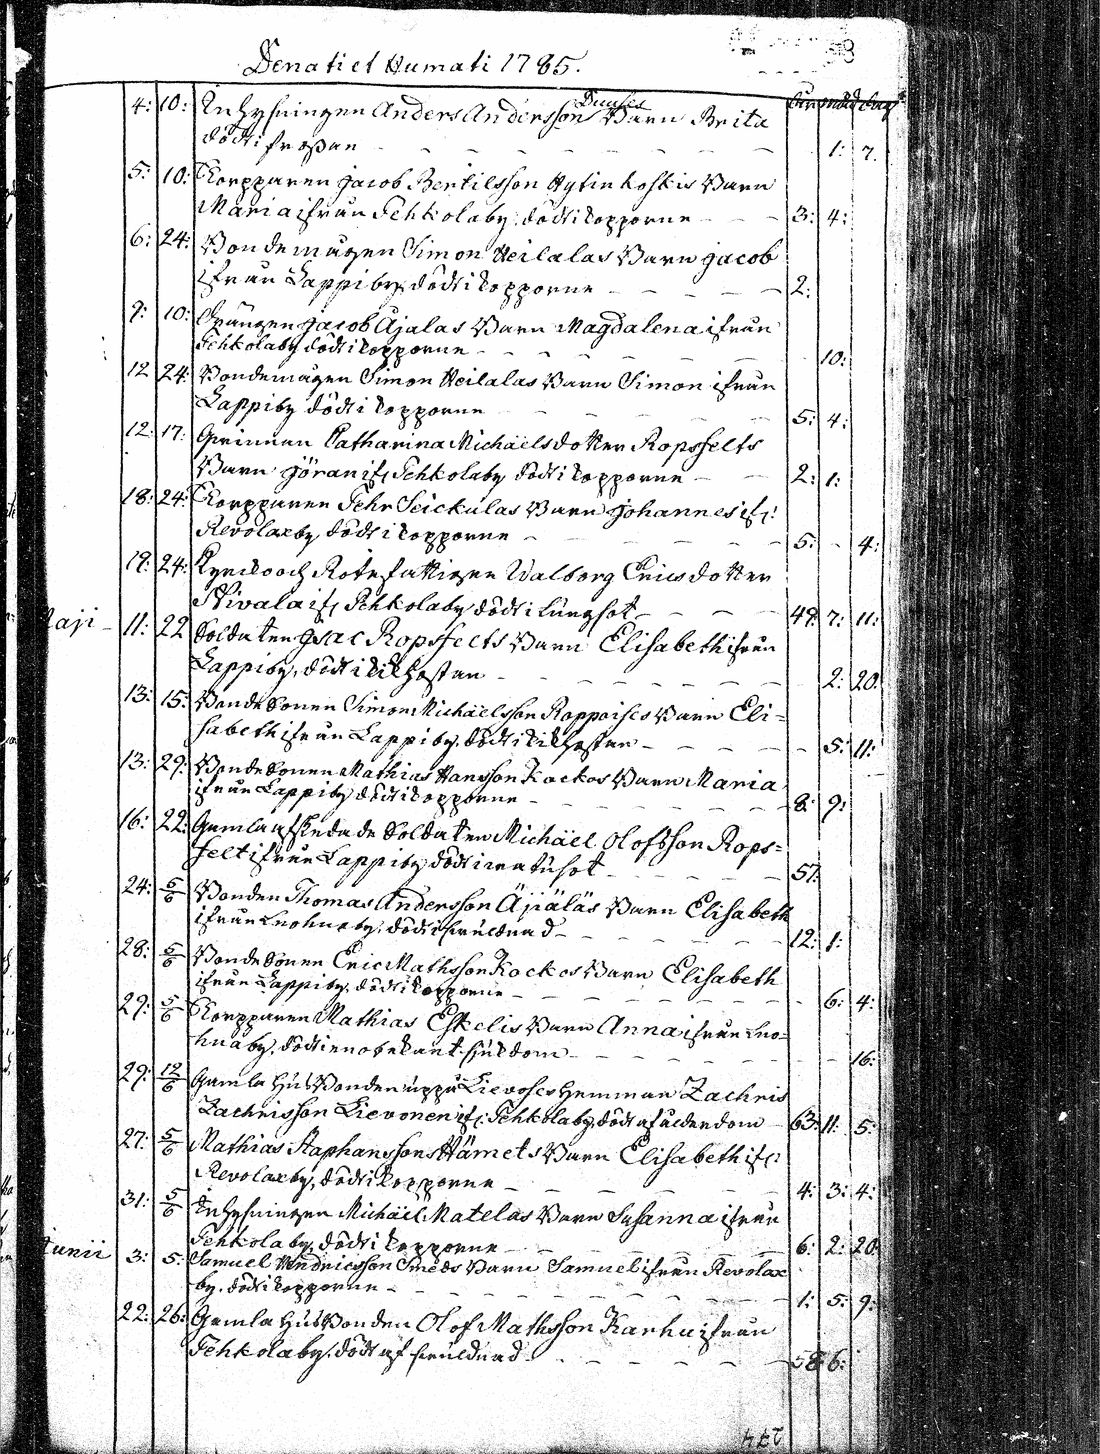 Denati et Humati 1785.
åhr månd dag
4: 10: Inhysningen Anders Andersson Duuses Barn Brita
död i frossan 1: 7.
5: 10: Torpparen Jacob Bertilsson Hytinkoskis Barn
Maria ifrån Pehkolaby, död i kopporne 3: 4:
6: 24: Bondemågen Simon Heilalas Barn Jacob
ifrån Lappiby, död i kopporne 2:
9: 10: Drängen Jacob Äjalas Barn Magdalena ifrån
Pehkolaby död i kopporne 10:
12 24: Bondemågen Simon Heilalas Barn Simon ifrån
Lappiby död i kopporne 5: 4:
12: 17: Qvinnan Catharina Michaëlsdotter Ropsfelts
Barn Göran if: Pehkolaby, död i kopporne 2: 1:
18: 24: Torpparen Pehr Seickulas Barn Johannes if:
Revolaxby, död i kopporne 5: - 4:
19: 24: Kyrck och Rotefattigen Walborg Ericsdotter
Nivala if: Pehkolaby död i lungsot 49: 7: 11:
Maji 11: 22 Soldaten Isac Ropsfelts Barn Elisabeth ifrån
Lappiby, död i kikhostan 2: 20:
13: 15: Bondesonen Simon Michaëlsson Roppoises Barn Eli=
sabeth ifrån Lappiby, död i kikhostan 5: 11:
13: 29: Bondesonen Mathias Hansson Kockos Barn Maria
ifrån Lappiby död i kopporne 8: 9:
16: 22: Gamla afskedade Soldaten Michäel Olofsson Rops=
felt ifrån Lappiby, död i matusot 57:
24: 5/6 Bonden Thomas Andersson Äjäläs Barn Elisabeth
ifrån Luohuaby, död i 12: 1:
28: 5/6 Bondesonen Eric Mathsson Kockos Barn Elisabeth
ifrån Lappiby, död i kopporne 6: 4:
29: 5/6 Torpparen Mathias Eskelis Barn Anna ifrån Luo=
huaby, död i en obekant sjukdom 16:
29: 12/6 Gamla Husbonden uppå Lievoses Hemman Zachris
Zachrisson Lievonen if: Pehkolaby, död af ålderdom 63: 11: 5:
27: 5/6 Mathias Staphansson Hämets Barn Elisabeth if:
Revolaxby, död i kopporne 4: 3: 4:
31: 5/6 Inhysningen Michäel Matelas Barn Susanna ifrån
Pehkolaby, död i kopporne 6: 2: 20
Junii 3: 5: Samuel Hindricsson Smeds Barn Samuel ifrån Revolax
by, död i kopporne 1: 5: 9:
22: 26: Gamla Husbonden Olof Mathsson Karhu ifrån
Pehkolaby, död af 58 6:
274